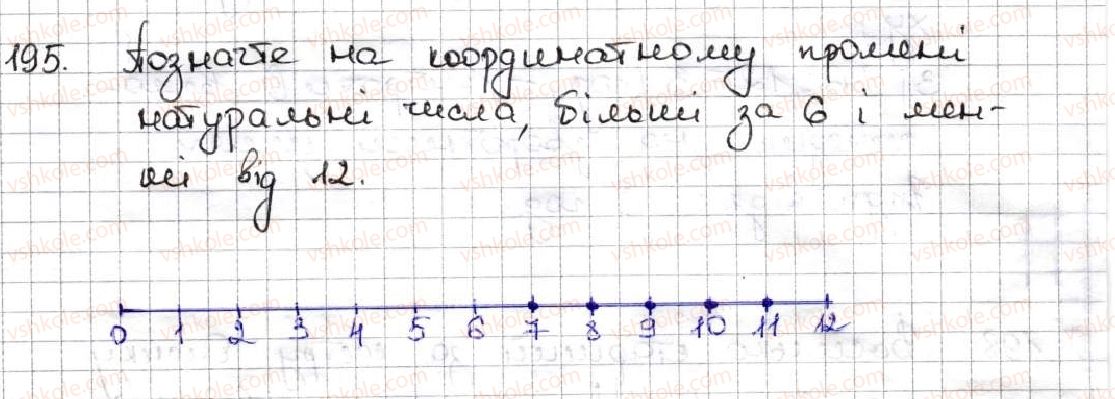 195. Позначте на координатному промені
натуральні числа, більші за 6 і мен-
ші від 12.
0 1 2 3 4 5 6 7 8 9 10 11 12